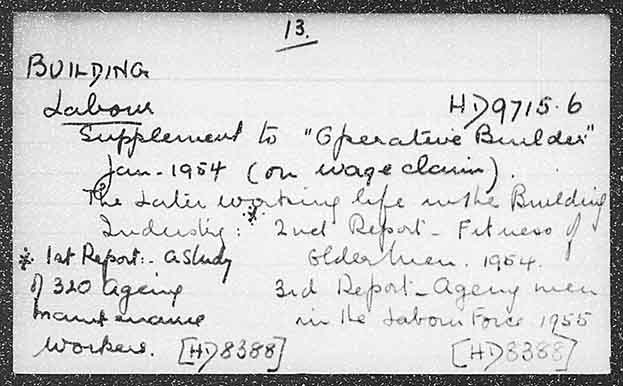 13.
BUILDING
Labour HD9715.6
Supplement to "Operative Builder"
Jan - 1954 (on wage claim).
The Later working life in the Building
Industry : * 2nd Report - Fitness of
* 1st Report :- a study Older Men. 1954.
of 320 ageing 3rd Report - Ageing men
maintenance in the Labour Force 1955
workers. [HD8388] [HD8388]